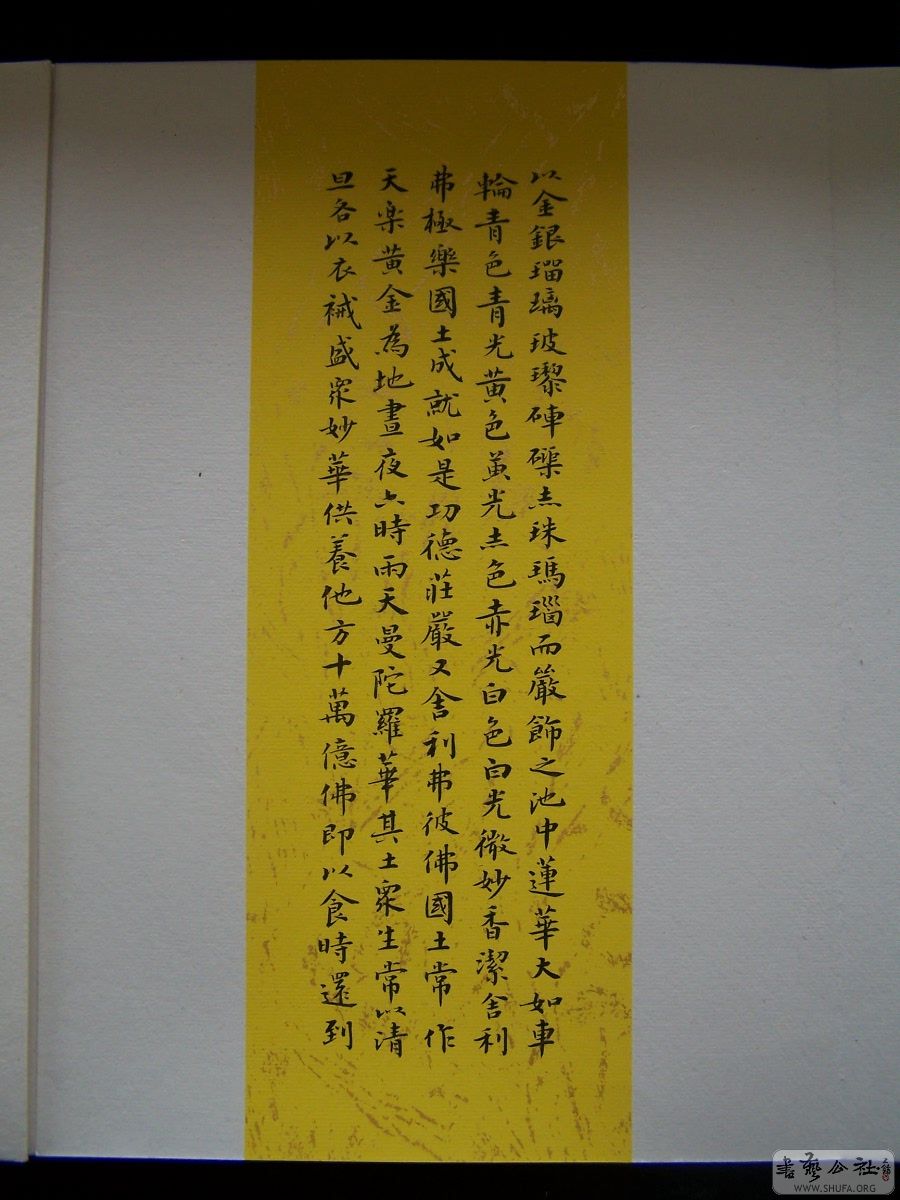 以金銀瑠璃玻瓈硨磲赤珠瑪瑙而嚴飾之池中蓮華大如車
輪青色青光黃色黃光赤色赤光白色白光微妙香潔舍利
弗極樂國土成就如是功德莊嚴又舍利弗彼佛國土常作
天樂黃金為地晝夜六時雨天曼陀羅華其土眾生常以清
旦各以衣裓盛眾妙華供養他方十萬億佛即以食時還到
書藝公社
WWW.SHUFA.ORG